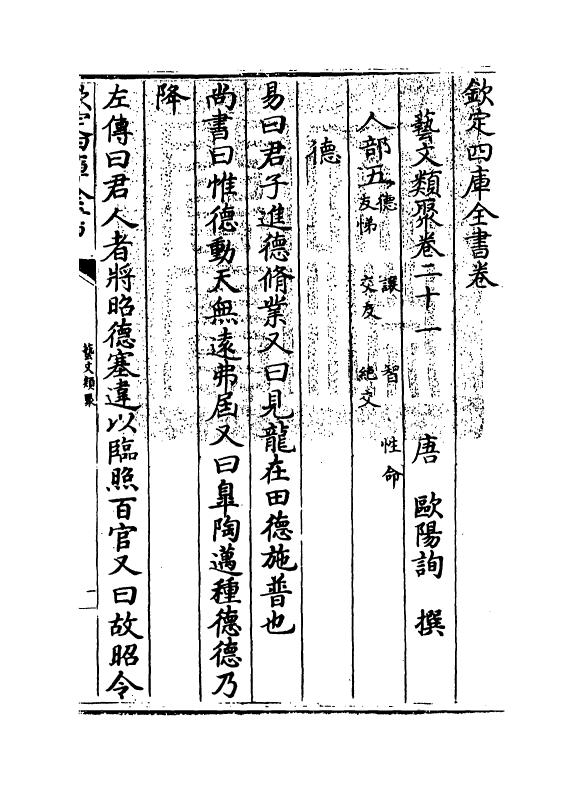 欽定四庫全書卷
藝文類聚卷二十一　唐　歐陽詢　撰
人部五　德　讓　智　性命　友悌　交友　絶交
德
易曰君子進德脩業又曰見龍在田德施普也
尚書曰惟德動天無遠弗届又曰臯陶邁種德德乃
降
左傳曰君人者將昭德塞違以臨照百官又曰故昭令
欽定四庫全書
藝文類聚
一